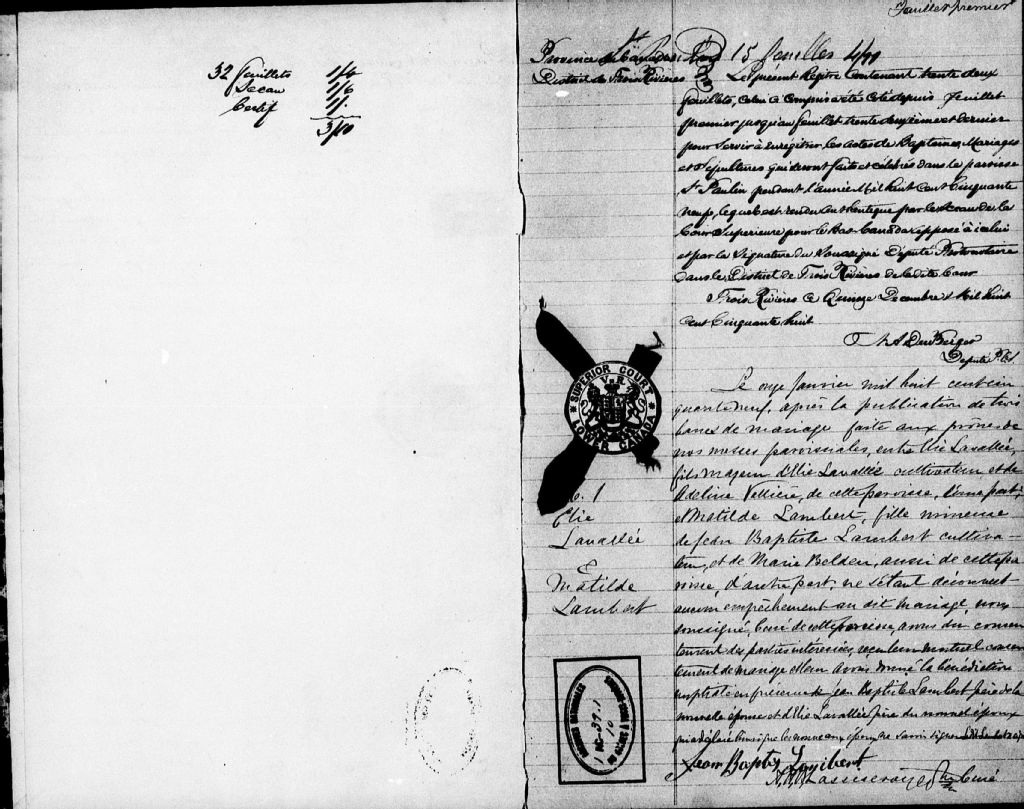 32 feuillets 1/4
Sceau 1/6
Certif 1/.
3/10
Feuillet premier
Province du Canada 15 feuilles
District de Trois Rivières
Le présent Régitre Contenant trente deux
feuillets, celui ci compris a été coté depuis feuillet
premier jusqu'au feuillet trente deuxième et dernier
pour Servir à Enrégitrer les actes de Baptemes, Mariages
et Sépultures qui seront faits et célébrés dans la paroisse
St Paulin pendant l'année Mil huit Cent Cinquante
neuf, lequel est rendu authentique par le Sceau de la
Cour Supérieure pour le Bas Canada apposé à icelui
et par la Signature du Soussigné Député Protonotaire
dans le District de Trois Rivières de la dite Cour
Trois Rivières ce Quinze Decembre Mil huit
cent Cinquante huit
Député P.C.S
SUPERIOR COURT
V R
LOWER CANADA
Le onze Janvier mil huit cent cin
quante neuf, après la publication de trois
bancs de mariage faite aux prônes de
nos messes paroissiales, entre Elie Lavallée,
fils majeur d'Elie Lavallée cultivateur et de
Adeline Vellière, de cette paroisse, d'une part;
et Matilde Lambert, fille mineure
de Jean Baptiste Lambert cultiva-
teur, et de Marie Belden, aussi de cette pa
roisse, d'autre part, ne s'étant découvert
aucun empêchement au dit mariage, nous
soussigné, Curé de cette paroisse, avons du consen
tement des parties intéressées, reçu leur mutuel consen
tement de mariage et leur avons donné la bénédiction
nuptiale en présence de Jean Baptiste Lambert père de la
nouvelle épouse et d'Elie Lavallée père du nouvel époux
qui a déclaré ainsi que les nouveaux époux ne savoir signer
Jean Baptis Lambert
Ptre Curé
No. 1
Elie
Lavallée
&
Matilde
Lambert
ARCHIVES NATIONALES
10